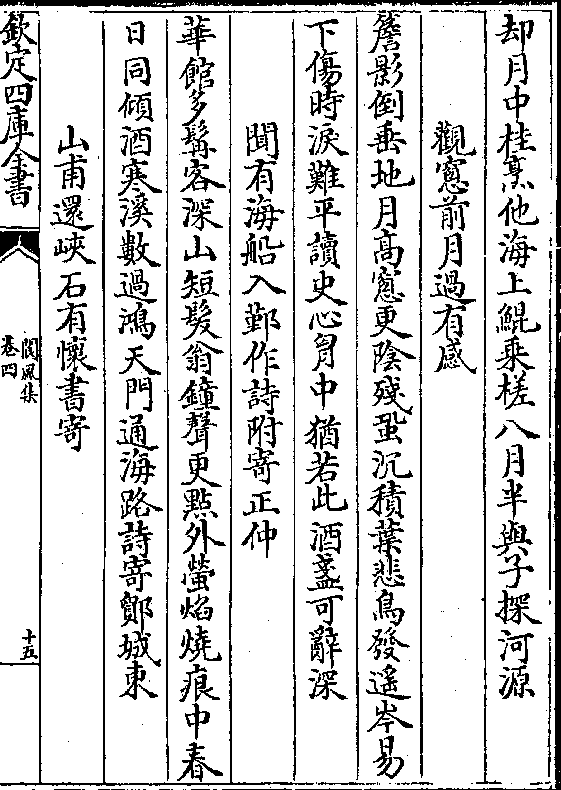 却月中桂烹他海上鯤乗槎八月半與子探河源
觀窻前月過有感
簷影倒垂地月高窻更陰殘蛩沉積葉悲鳥發遥岑易
下傷時淚難平讀史心胷中猶若此酒盞可辭深
聞有海船入鄞作詩附寄正仲
華館多鬋客深山短髮翁鐘聲更點外螢焰燒痕中春
日同傾酒寒溪數過鴻天門通海路詩寄鄮城東
山甫還峽石有懷書寄
欽定四庫全書
閬風集
卷四
十五